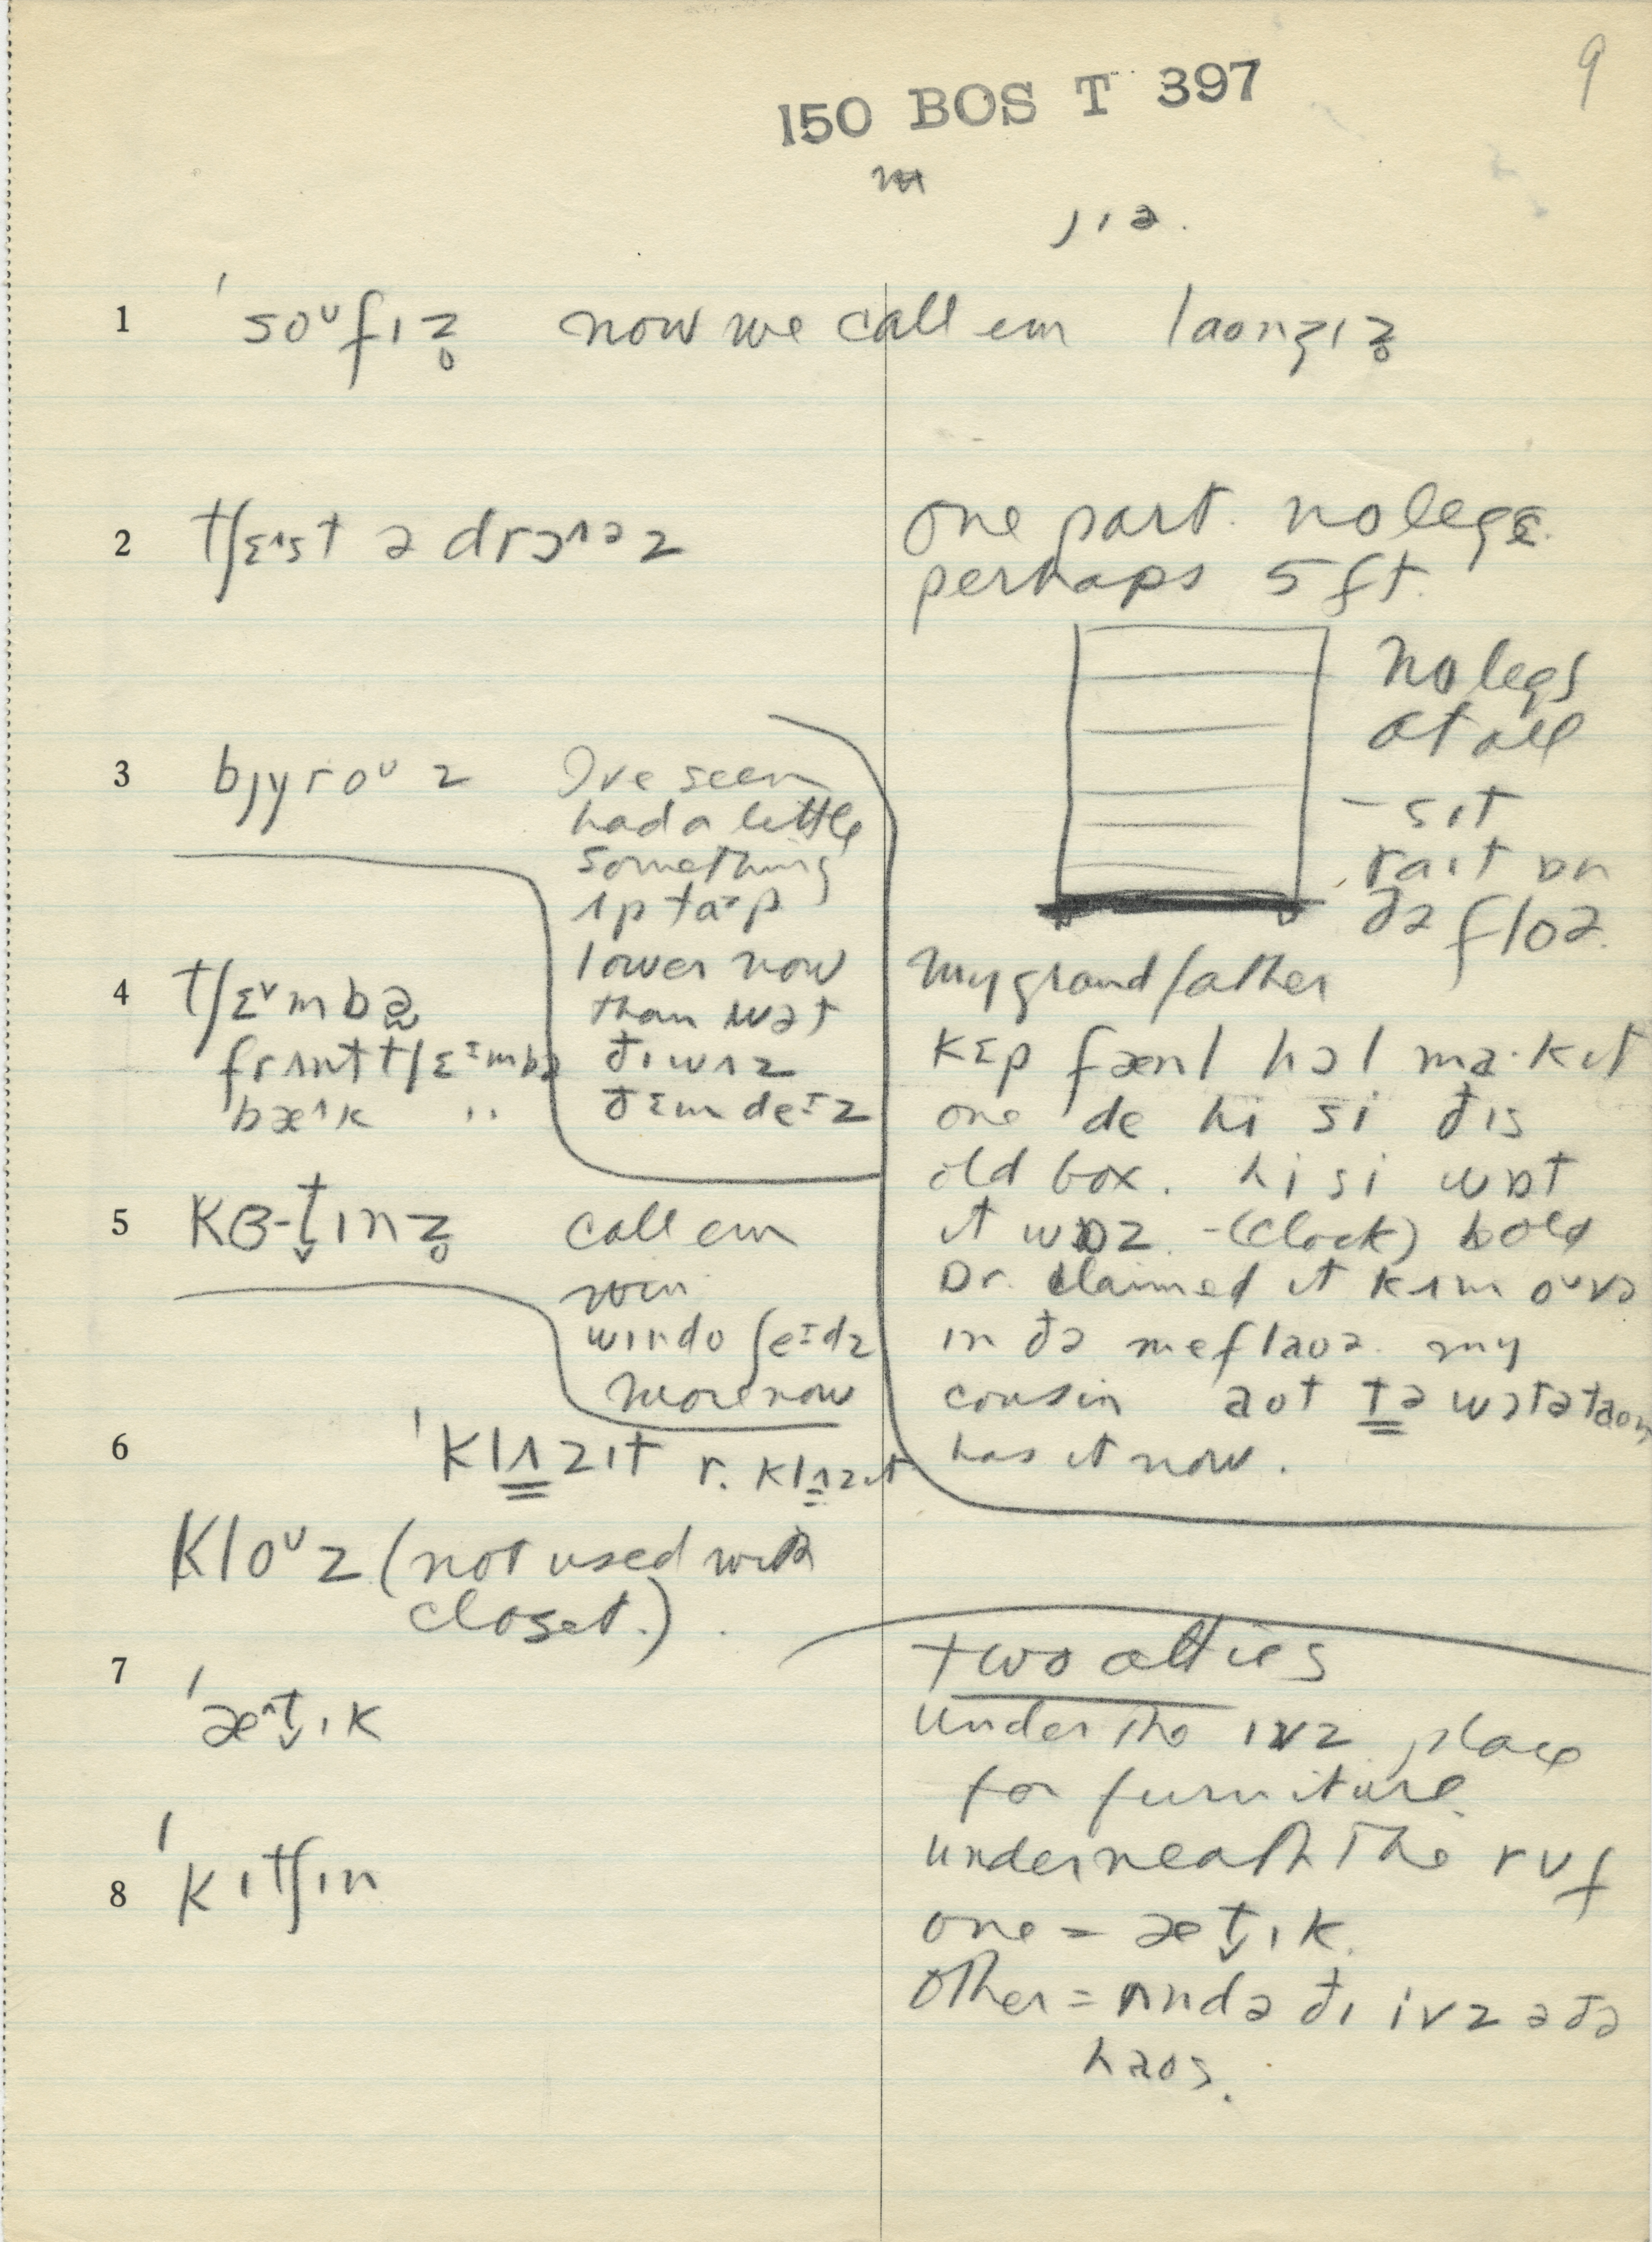 9
150 BOS T 397
ȷɪə.
1 ˈsoᶷfɪz̥ now we call em laonȝɪz̥
2 tʃɛ˄st ə drɔ˄əz
one part. no legs.
perhaps 5 ft.
no legs
at all
- sɪt
raɪt ɒn
ðə floə.
3 bȷyroᶷz
I've seen
had a little
something
ʌp ta·p
lower now
than wət
ðɪ wʌz
ðɛm deɪz
4 tʃɛ˅mbə
frʌnt tʃɛɪmbə
bæ˄k "
my grandfather
kɛp fænl hɔl ma·kɪt
one de hi si ðɪs
old box. hi si wɒt
it wɒz - (clock) bold
Dr. claimed it kʌm oᶷvə
in ðə meflaoə. my
cousin aot tə wɔtətaon
has it now.
5 kɜ-t̬ɪnz̥ call em
win
windo ʃeɪdz
more now
6 ˈklʌzɪt r. klʌzɪt
kloᶷz (not used with
closet.)
7 ˈæ˄t̬ɪk
two attics
under the ivz place
for furniture
underneath the ruf
one = æt̬ɪk.
other = ʌndə ðɪ ivz ə ðə
haos.
8 ˈkɪtʃɪn